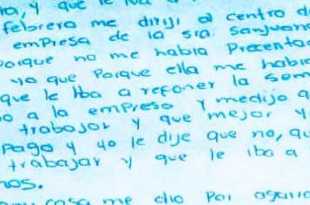 y que le
febrero me dirijí al centro d
empresa de la sra sanjuan
porque no me habia Precenta
yo que Porque ella me habi
que le Iba a reponer la sem
a la empreso y medijo q
trabajor y que mejor y
Pago y yo le dije que no, qu
trabajar y que le iba a
nos.
casa me dio Por agarra